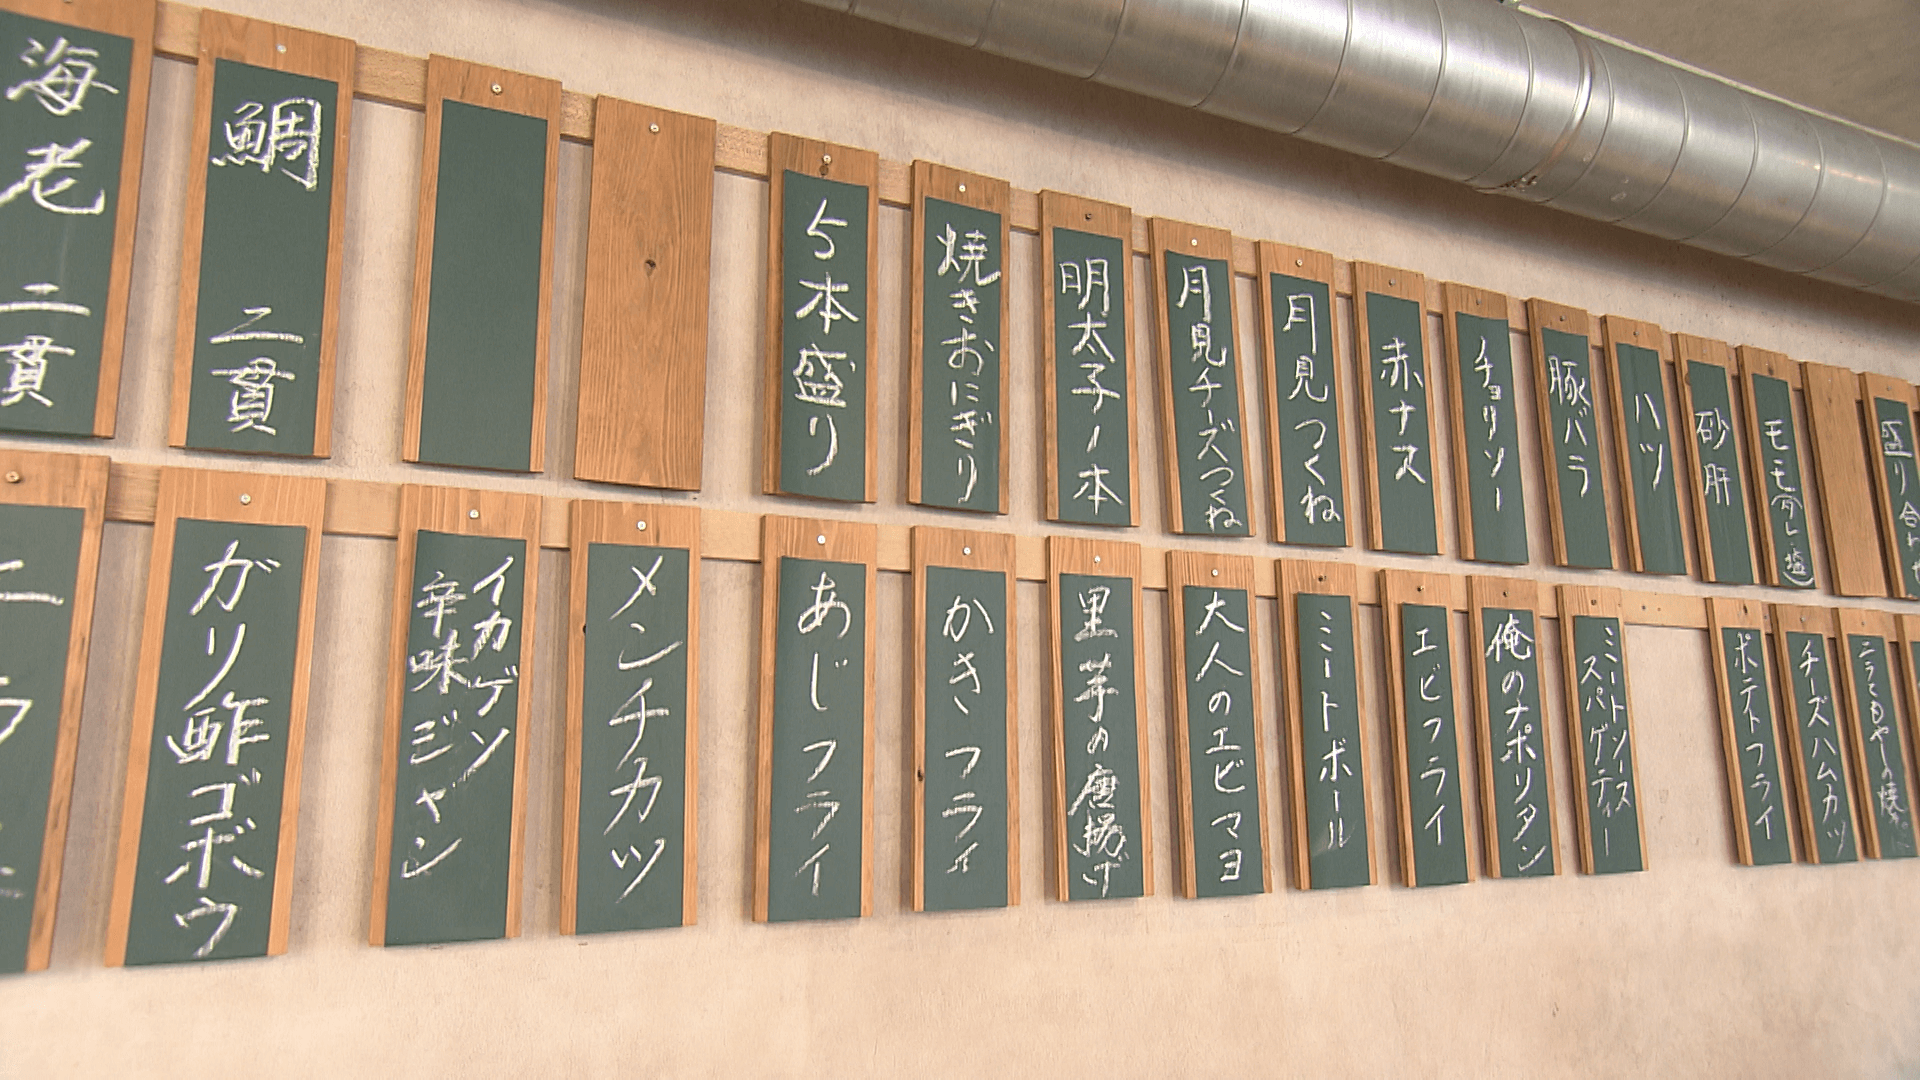 海老 二貫
鯛 二貫
5本盛り
焼きおにぎり
明太子1本
月見チーズつくね
月見つくね
赤ナス
チョリソー
豚バラ
ハツ
砂肝
モモ
盛り合わせ
ガリ酢ゴボウ
イカゲソ
辛味ジャン
メンチカツ
あじフライ
かきフライ
里芋の唐揚げ
大人のエビマヨ
ミートボール
エビフライ
俺のナポリタン
ミートソース
スパゲティー
ポテトフライ
チーズハムカツ
ニラともやしの